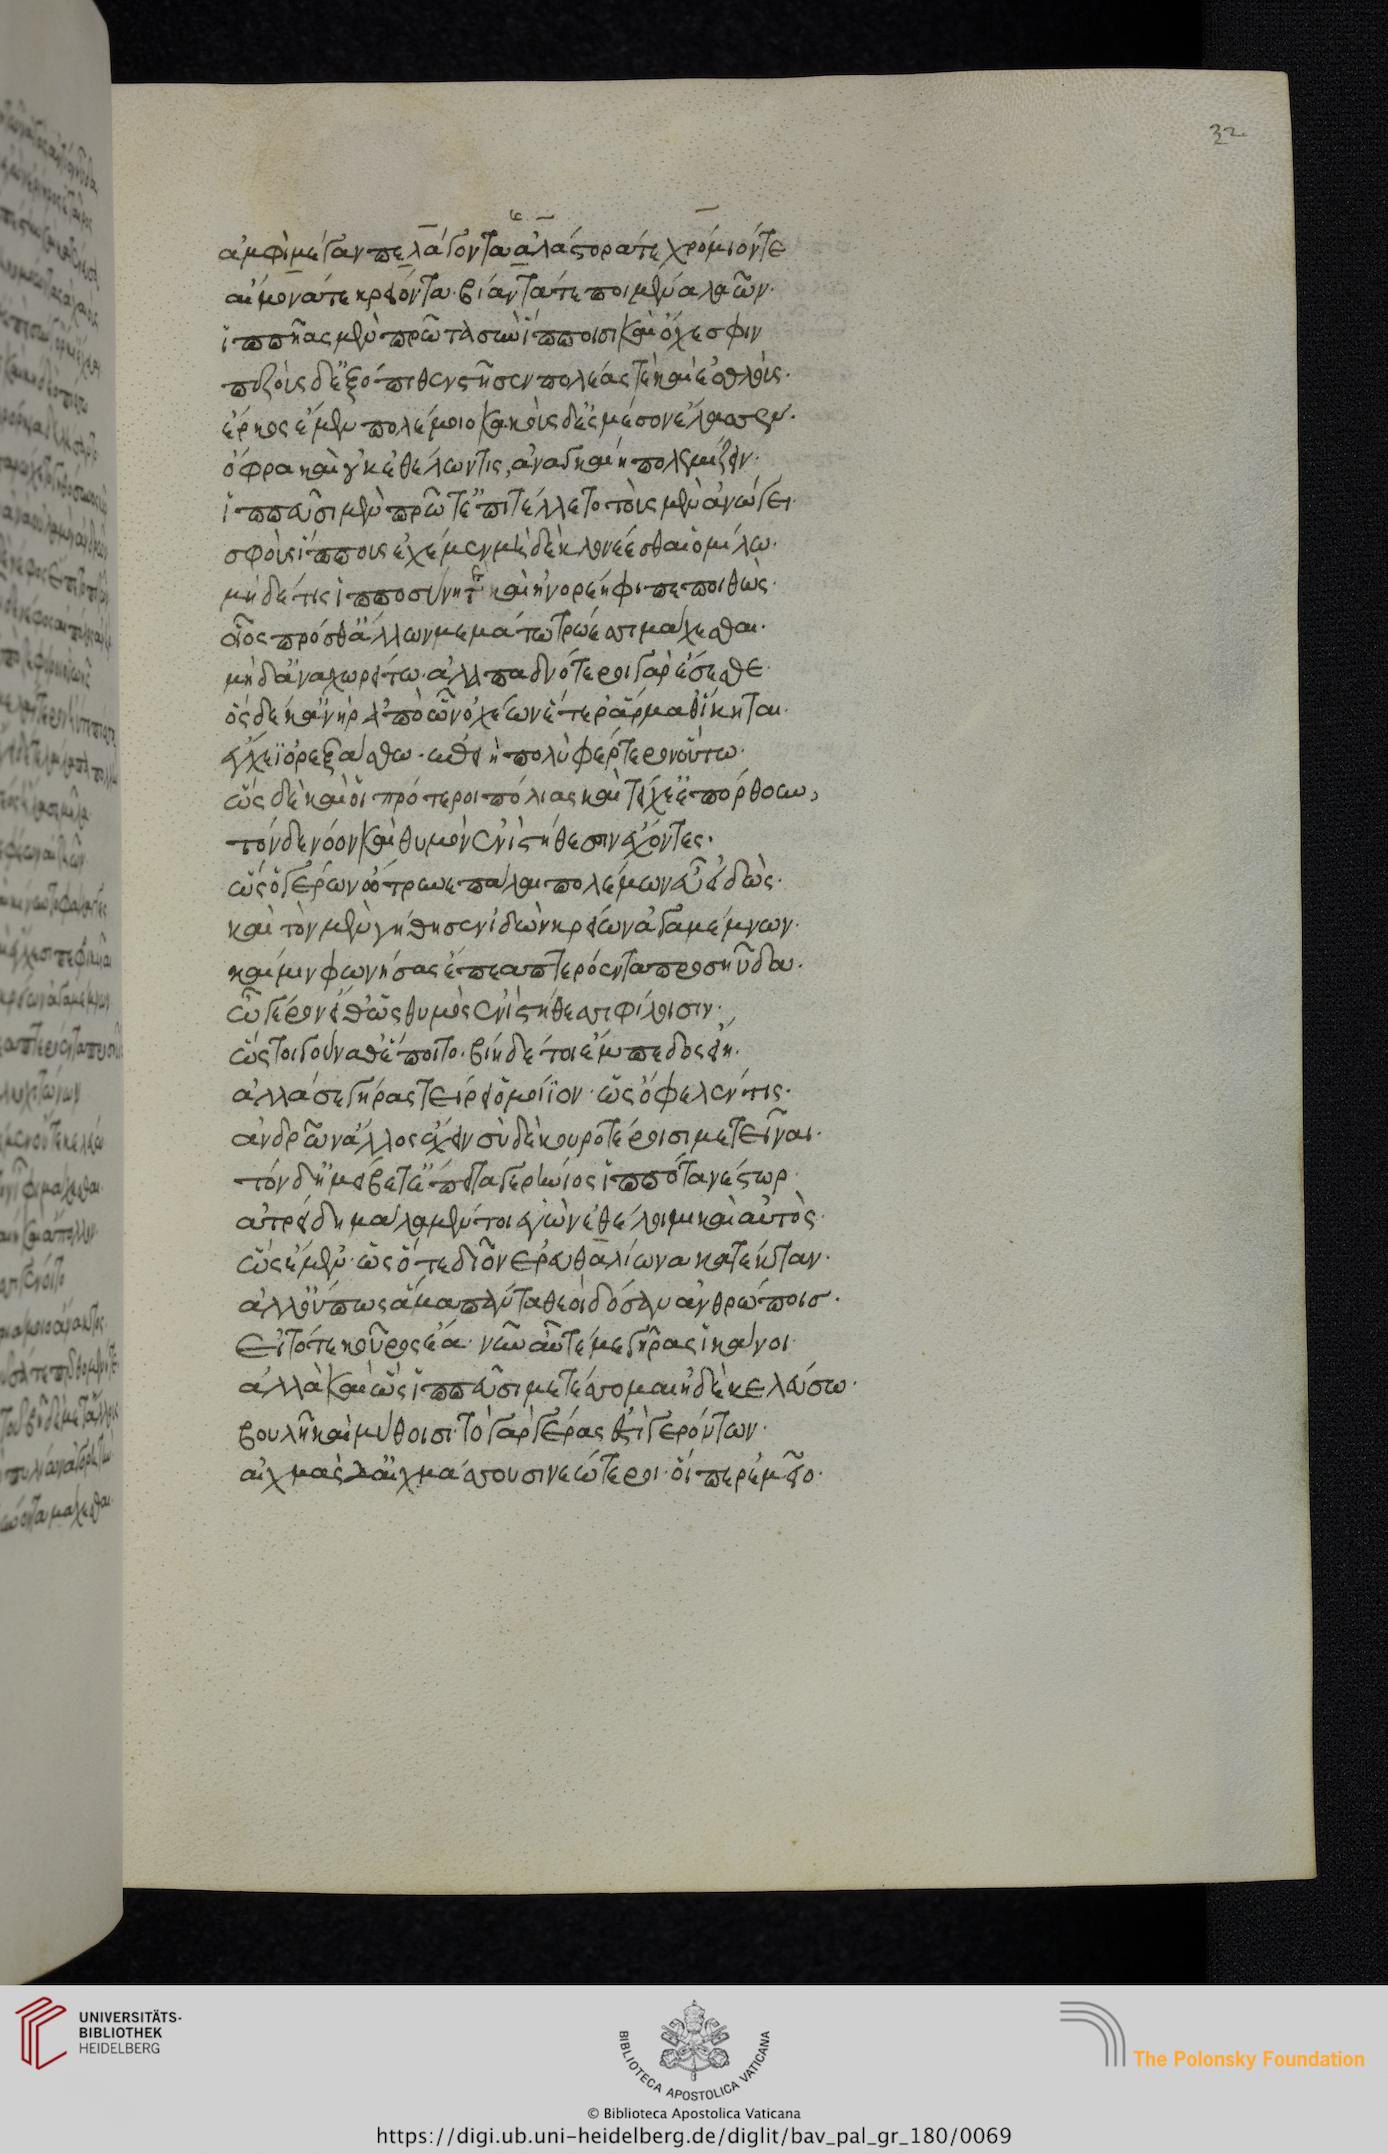 32
ἀμφὶ μέγαν πελάγοντα ἀλάστορά τε χρόμιόν τε
αἵμονά τε κρείοντα· βίαντά τε ποιμένα λαῶν·
ἱππῆας μὲν πρῶτα σὺν ἵπποισι καὶ ὄχεσφιν
πεζοὺς δ' ἐξόπιθεν στῆσεν πολέας τε καὶ ἐσθλοὺς·
ἕρκος ἔμεν πολέμοιο κακοὺς δ' ἐς μέσον ἔλασσεν·
ὄφρα καὶ οὐκ ἐθέλων τις, ἀναγκαίη πολεμίζειν·
ἱππεῦσι μὲν πρῶτ' ἐπιτέλλετο τοὺς μὲν ἀνώγει·
σφοὺς ἵππους ἐχέμεν μὲ δὲ κλονέεσθαι ὁμίλω·
μὴ δέ τις ἱπποσύνη τε καὶ ἠνορέηφι πεποιθὼς·
οἶος πρόσθ' ἄλλων μεμάτω τρώεσσι μάχεσθαι·
μὴ δ' ἀναχωρείτω· ἀλλαπαδνότεροι γὰρ ἔσεσθε·
ὃς δέ κ' ἀνὴρ ἀπὸ ὧν ὀχέων ἕτερ' ἅρμαθ' ἵκηται·
ἔγχει ὀρεξάσθω· ἐπειὴ πολὺ φέρτερον οὕτω·
ὧς δὲ καὶ οἱ πρότεροι πόλιας καὶ τείχε' ἐπόρθουν,
τόνδε νόον καὶ θυμὸν ἐνὶ στήθεσσιν ἔχοντες·
ὧς ὁ γέρων ὄτρυνε πάλαι πολέμων εὖ εἰδὼς·
καὶ τὸν μὲν γήθησεν ἰδὼν κρείων ἀγαμέμνων·
καί μιν φωνήσας ἔπεα πτερόεντα προσηῦδα·
ὦ γέρον εἴθ' ὧς θυμὸς ἐνὶ στήθεσσι φίλοισιν·
ὧς τοι γούναθ' ἕποιτο· βίη δέ τοι ἔμπεδος εἴη·
ἀλλά σε γῆρας τείρει ὁμοίϊον· ὧς ὄφελέν τις·
ἀνδρῶν ἄλλος ἔχειν σὺ δὲ κουροτέροισι μετεῖναι·
τὸν δ' ἠμείβετ' ἔπειτα γερήνιος ἱππότα νέστωρ·
ἀτρείδη μάλα μέν τοι ἐγὼν ἐθέλοιμι καὶ αὐτὸς·
ὧς ἔμεν· ὧς ὅτε δῖον ἐρευθαλίωνα κατέκταν·
ἀλλ' οὔπως ἅμα πάντα θεοὶ δόσαν ἀνθρώποισ·
εἰ τότε κοῦρος ἔα· νῦν αὖτέ με γῆρας ἱκάνοι·
ἀλλὰ καὶ ὧς ἱππεῦσι μετέσσομαι ἠδὲ κελεύσω·
βουλῆ καὶ μύθοισι· τὸ γὰρ γέρας ἐστὶ γερόντων·
αἰχμὰς δ' αἰχμάσσουσι νεώτεροι· οἵ περ ἐμεῖο·
UNIVERSITÄTS-
BIBLIOTHEK
HEIDELBERG
BIBLIOTECA APOSTOLICA VATICANA
The Polonsky Foundation
© Biblioteca Apostolica Vaticana
https://digi.ub.uni-heidelberg.de/diglit/bav_pal_gr_180/0069